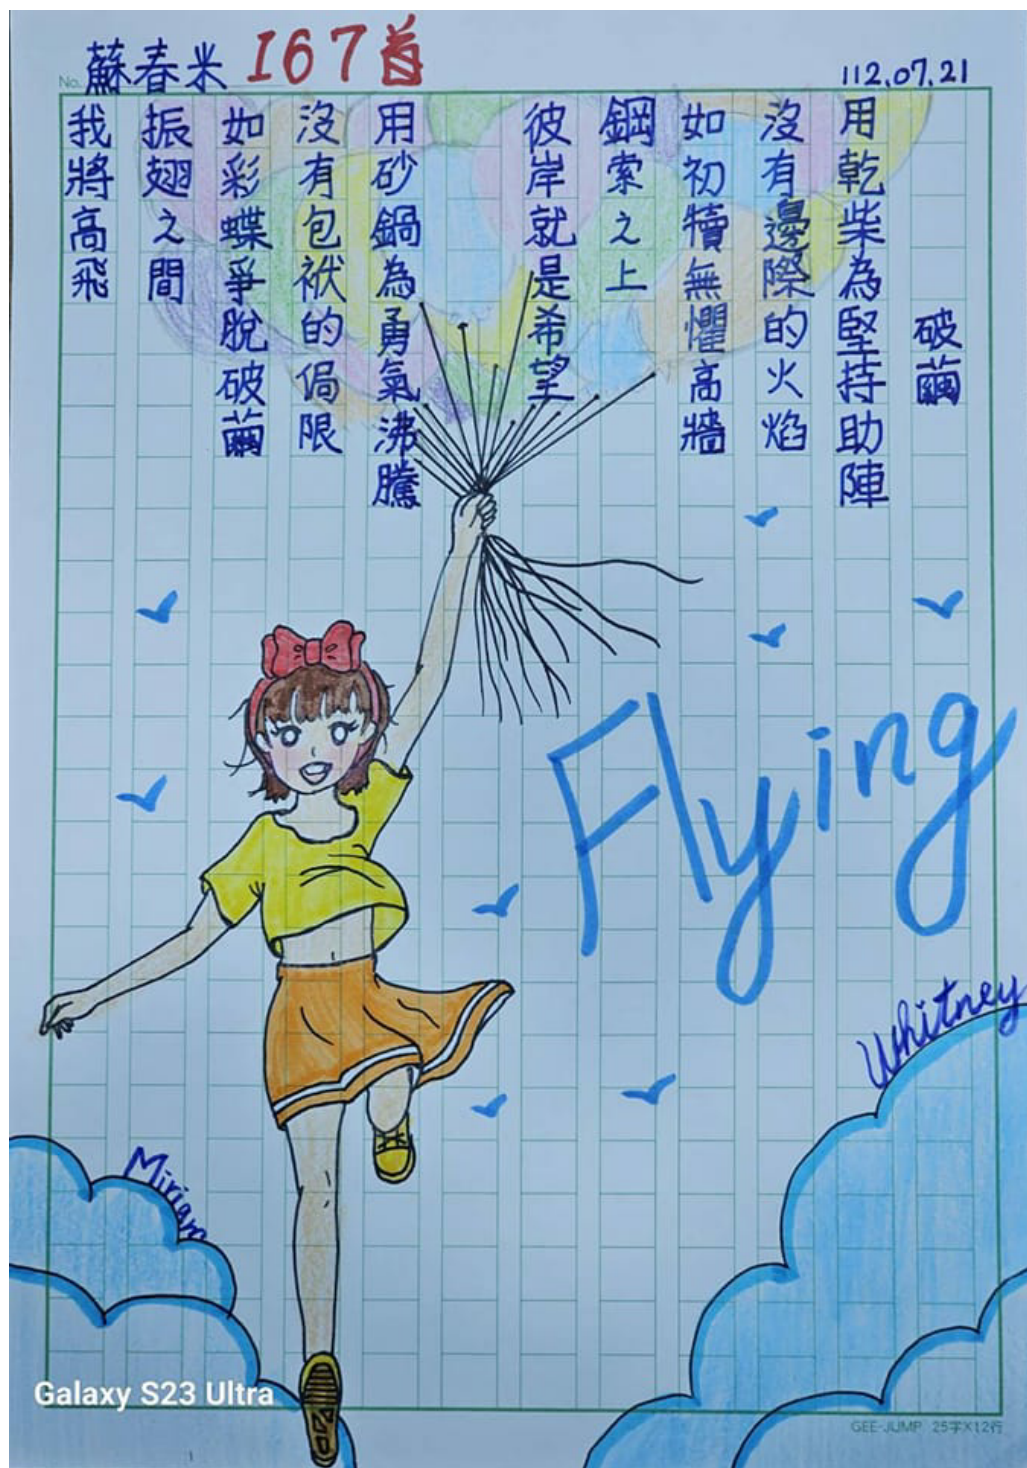 No. 蘇春米 167首
112.07.21
破繭
用乾柴為堅持助陣
沒有邊際的火焰
如初犢無懼高牆
鋼索之上
彼岸就是希望
用砂鍋為勇氣沸騰
沒有包袱的侷限
如彩蝶爭脫破繭
振翅之間
我將高飛
Flying
Whitney
Miriam
Galaxy S23 Ultra
GEE-JUMP 25字X12行